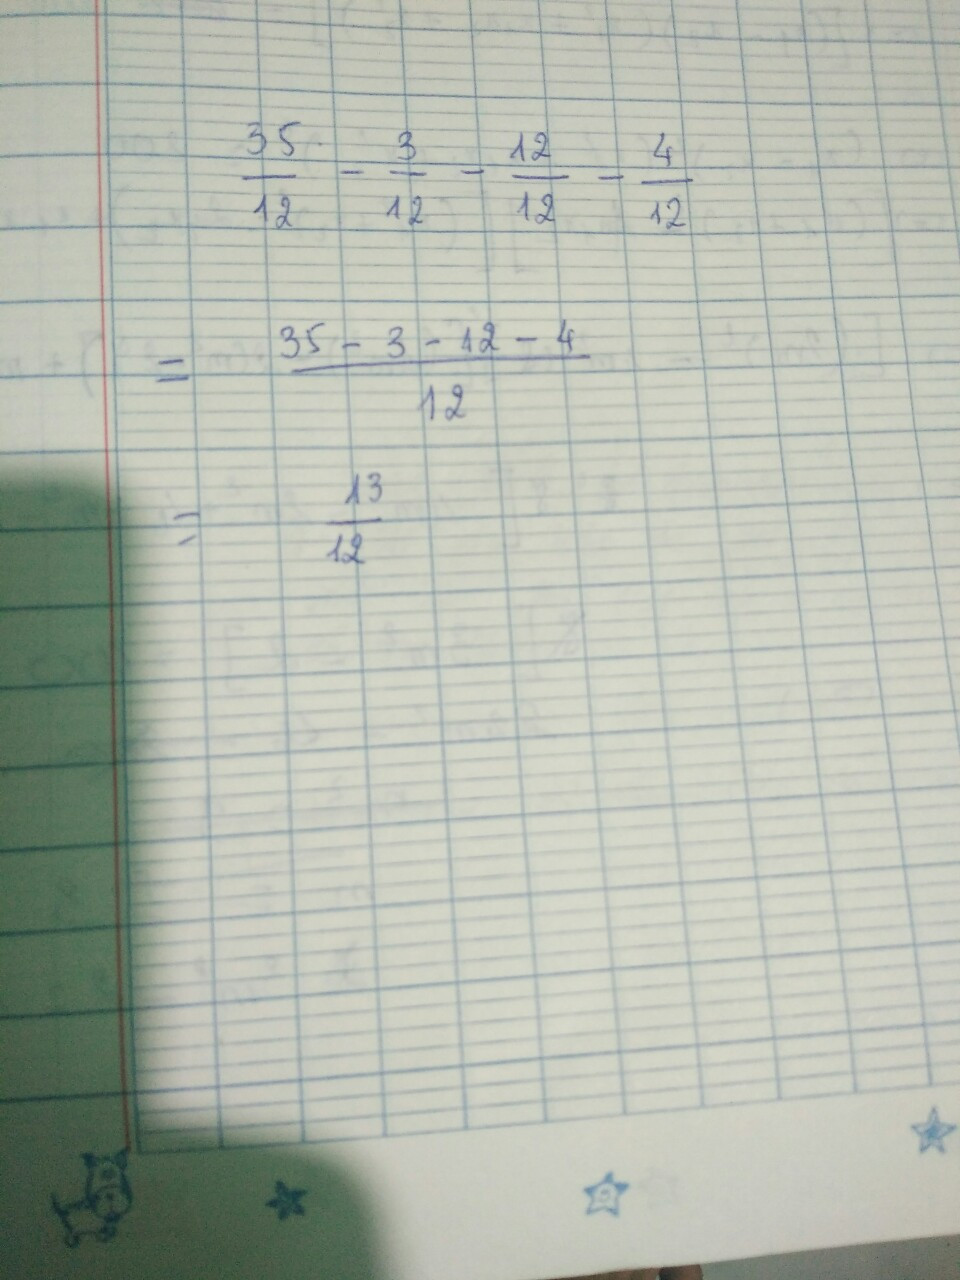 35/12 - 3/12 - 12/12 - 4/12
= (35 - 3 - 12 - 4)/12
= 13/12